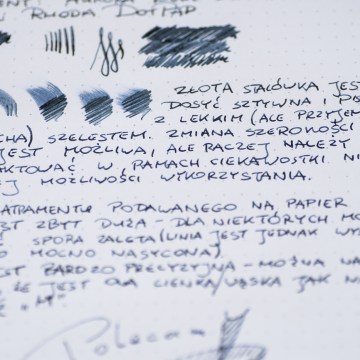 RHODIA DOTPAD
ZŁOTA STALÓWKA JES
DOSYĆ SZTYWNA I PIS
Z LEKKIM (ALE PRZYJEM
CHA) SZELESTEM. ZMIANA SZEROKOŚCI
JEST MOŻLIWA, ALE RACZEJ NALEŻY
KTOWAĆ W RAMACH CIEKAWOSTKI NI
EJ MOŻLIWOŚCI WYKORZYSTANIA.
ATRAMENTU PODAWANEGO NA PAPIER
ST ZBYT DUŻA - DLA NIEKTÓRYCH MO
SPORA ZALETA (LINIA JEST JEDNAK WY
O MOCNO NASYCONA)
ST BARDZO PRECYZYJNA - MOŻNA NA
ŻE JEST ONA CIENKA/WĄSKA JAK NI
"M"
Polecam